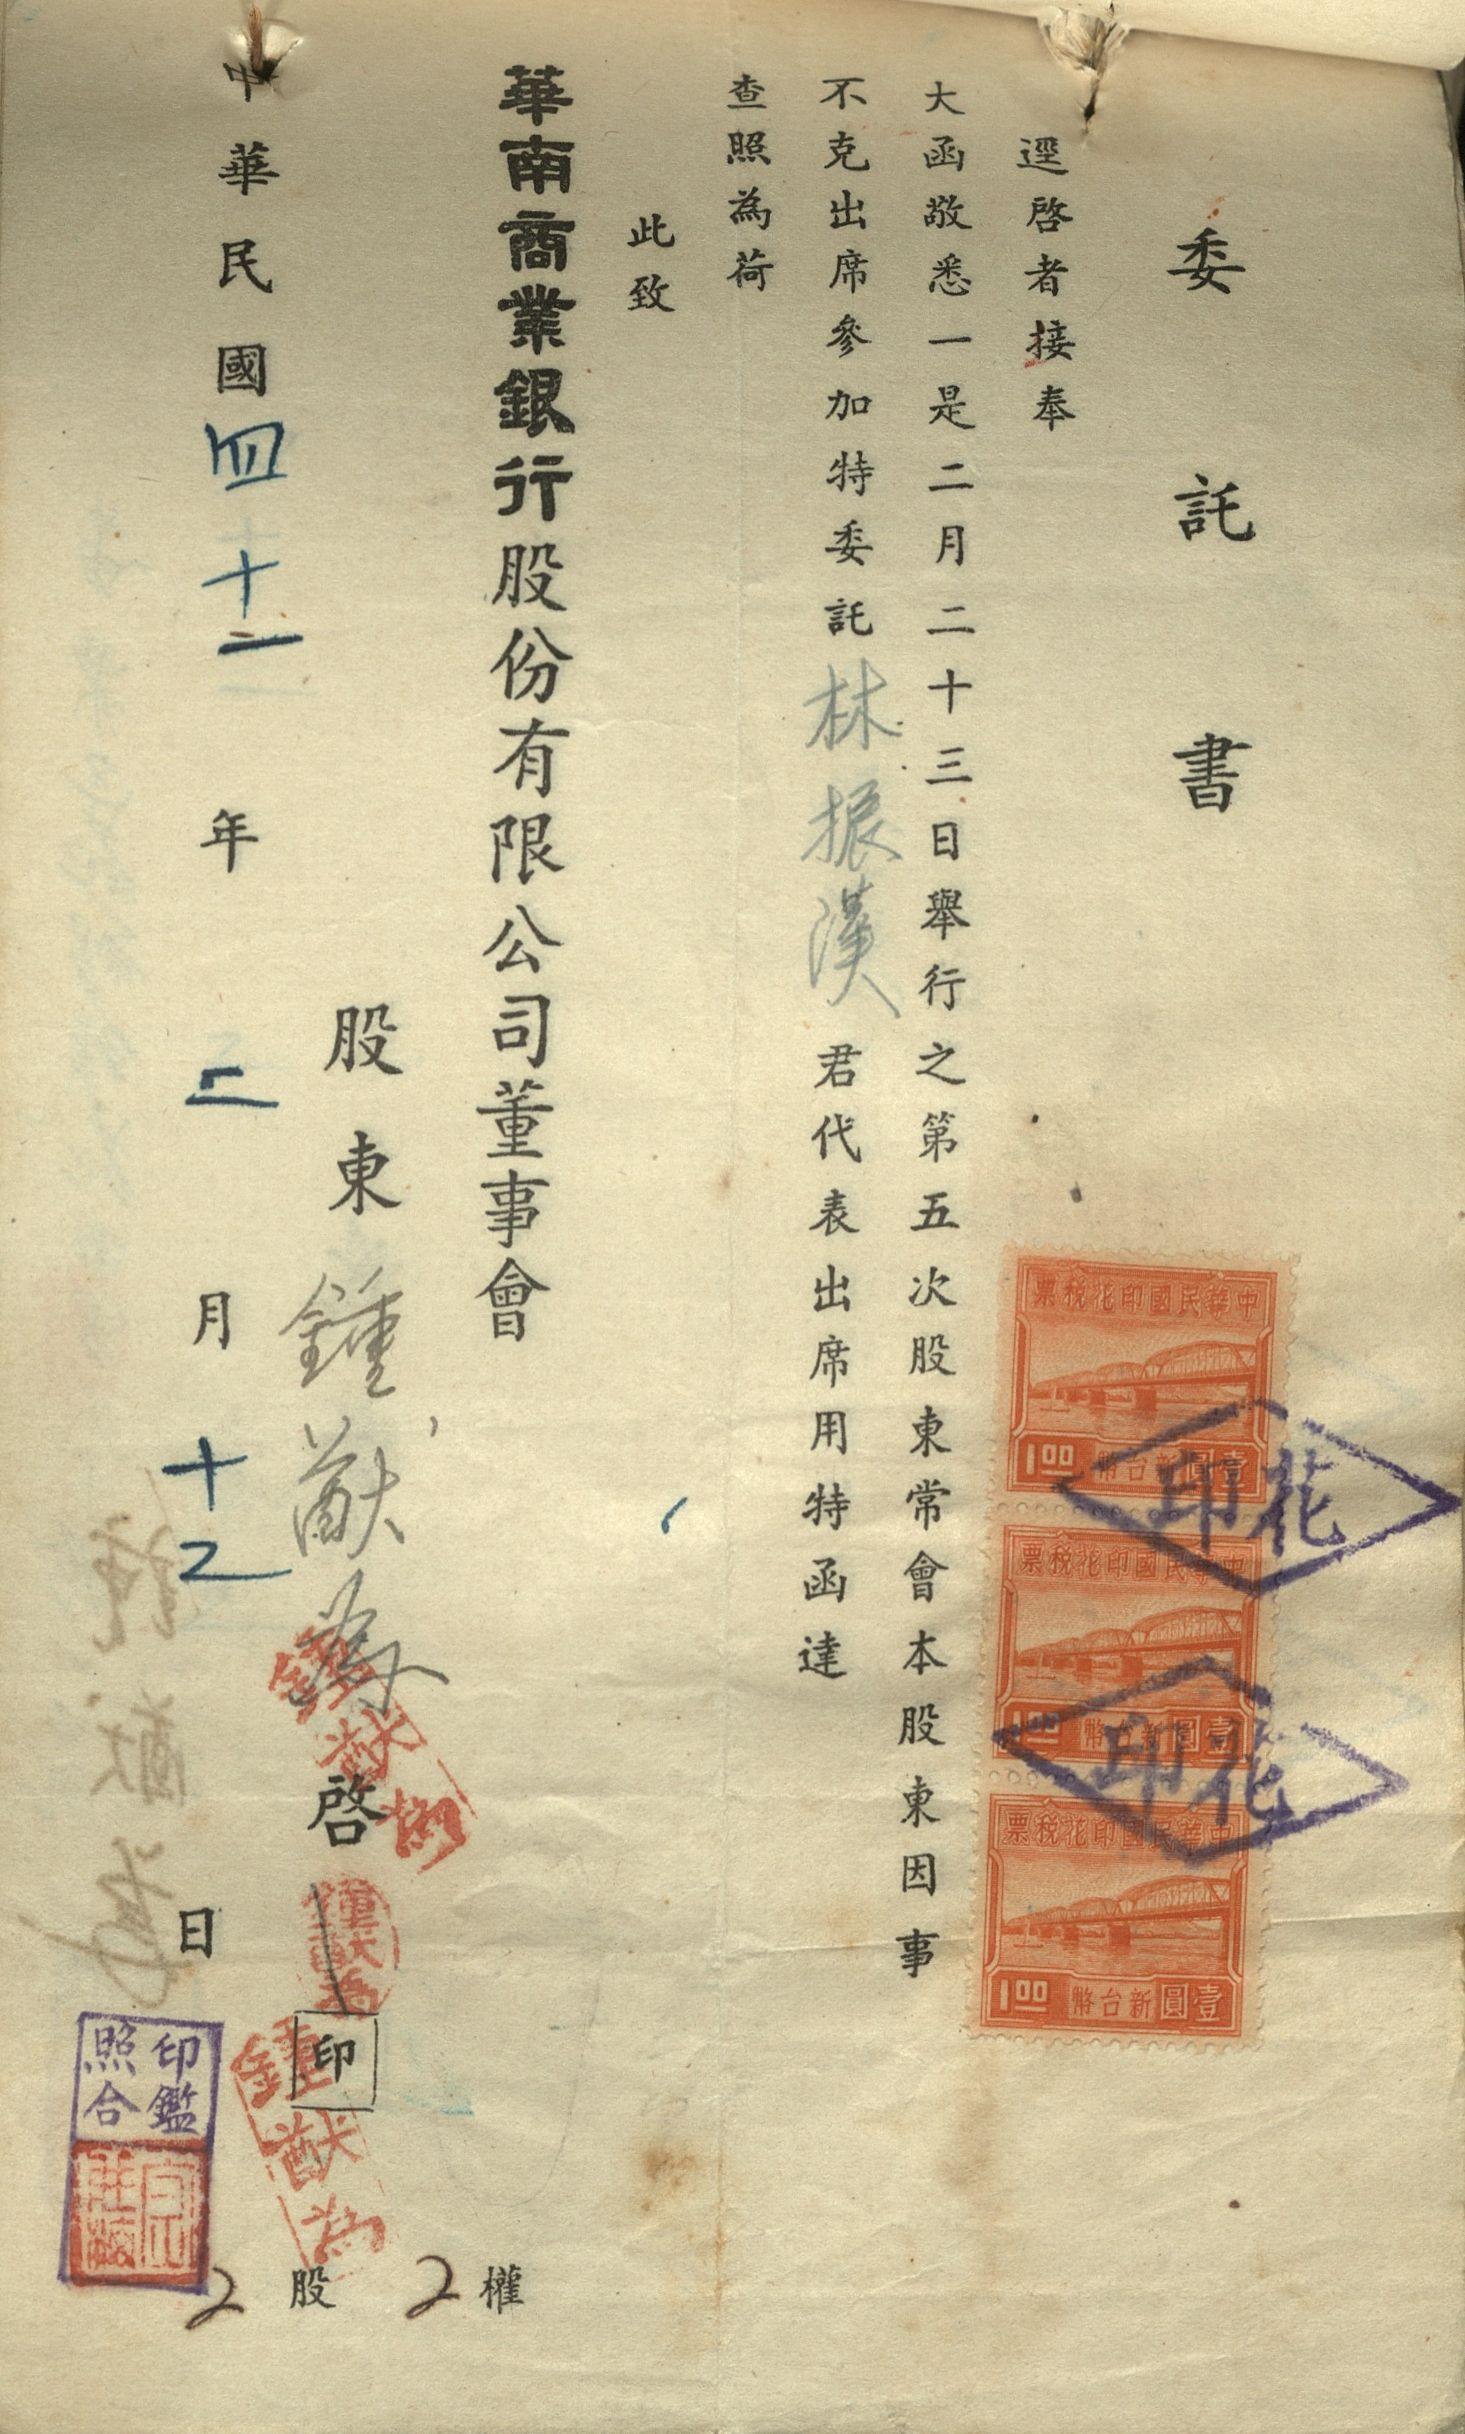 委託書
逕啓者接奉
大函敬悉一是二月二十三日舉行之第五次股東常會本股東因事
不克出席參加特委託林振漢君代表出席用特函達
查照為荷
此致
華南商業銀行股份有限公司董事會
股東鍾猷為啓印
中華民國四十二年二月十乙日
2股2權
中華民國印花稅票
1.00 新台幣壹圓
中華民國印花稅票
1.00 新台幣壹圓
中華民國印花稅票
1.00 新台幣壹圓
花印
花印
鍾猷為
鍾猷為
鍾猷為
印鑑
照合